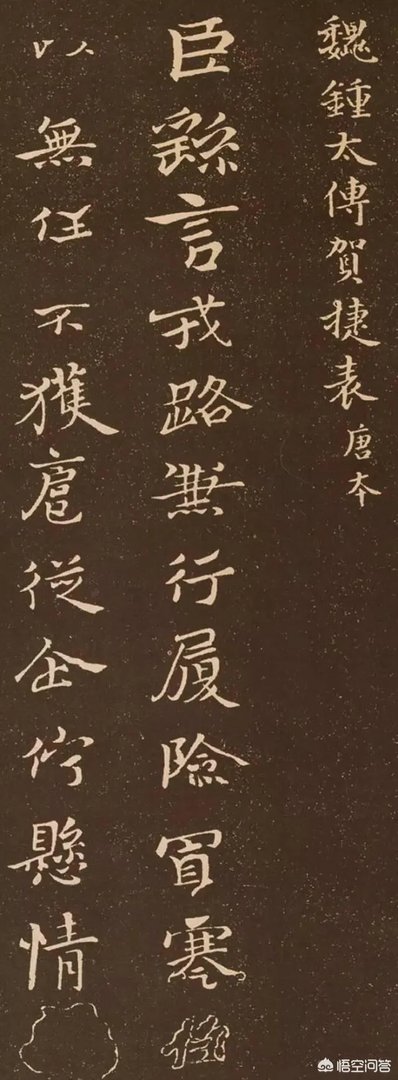 魏鍾太傅賀捷表唐本
臣繇言戎路兼行履險冒寒
以無任不獲扈從企佇懸情
悟空问答